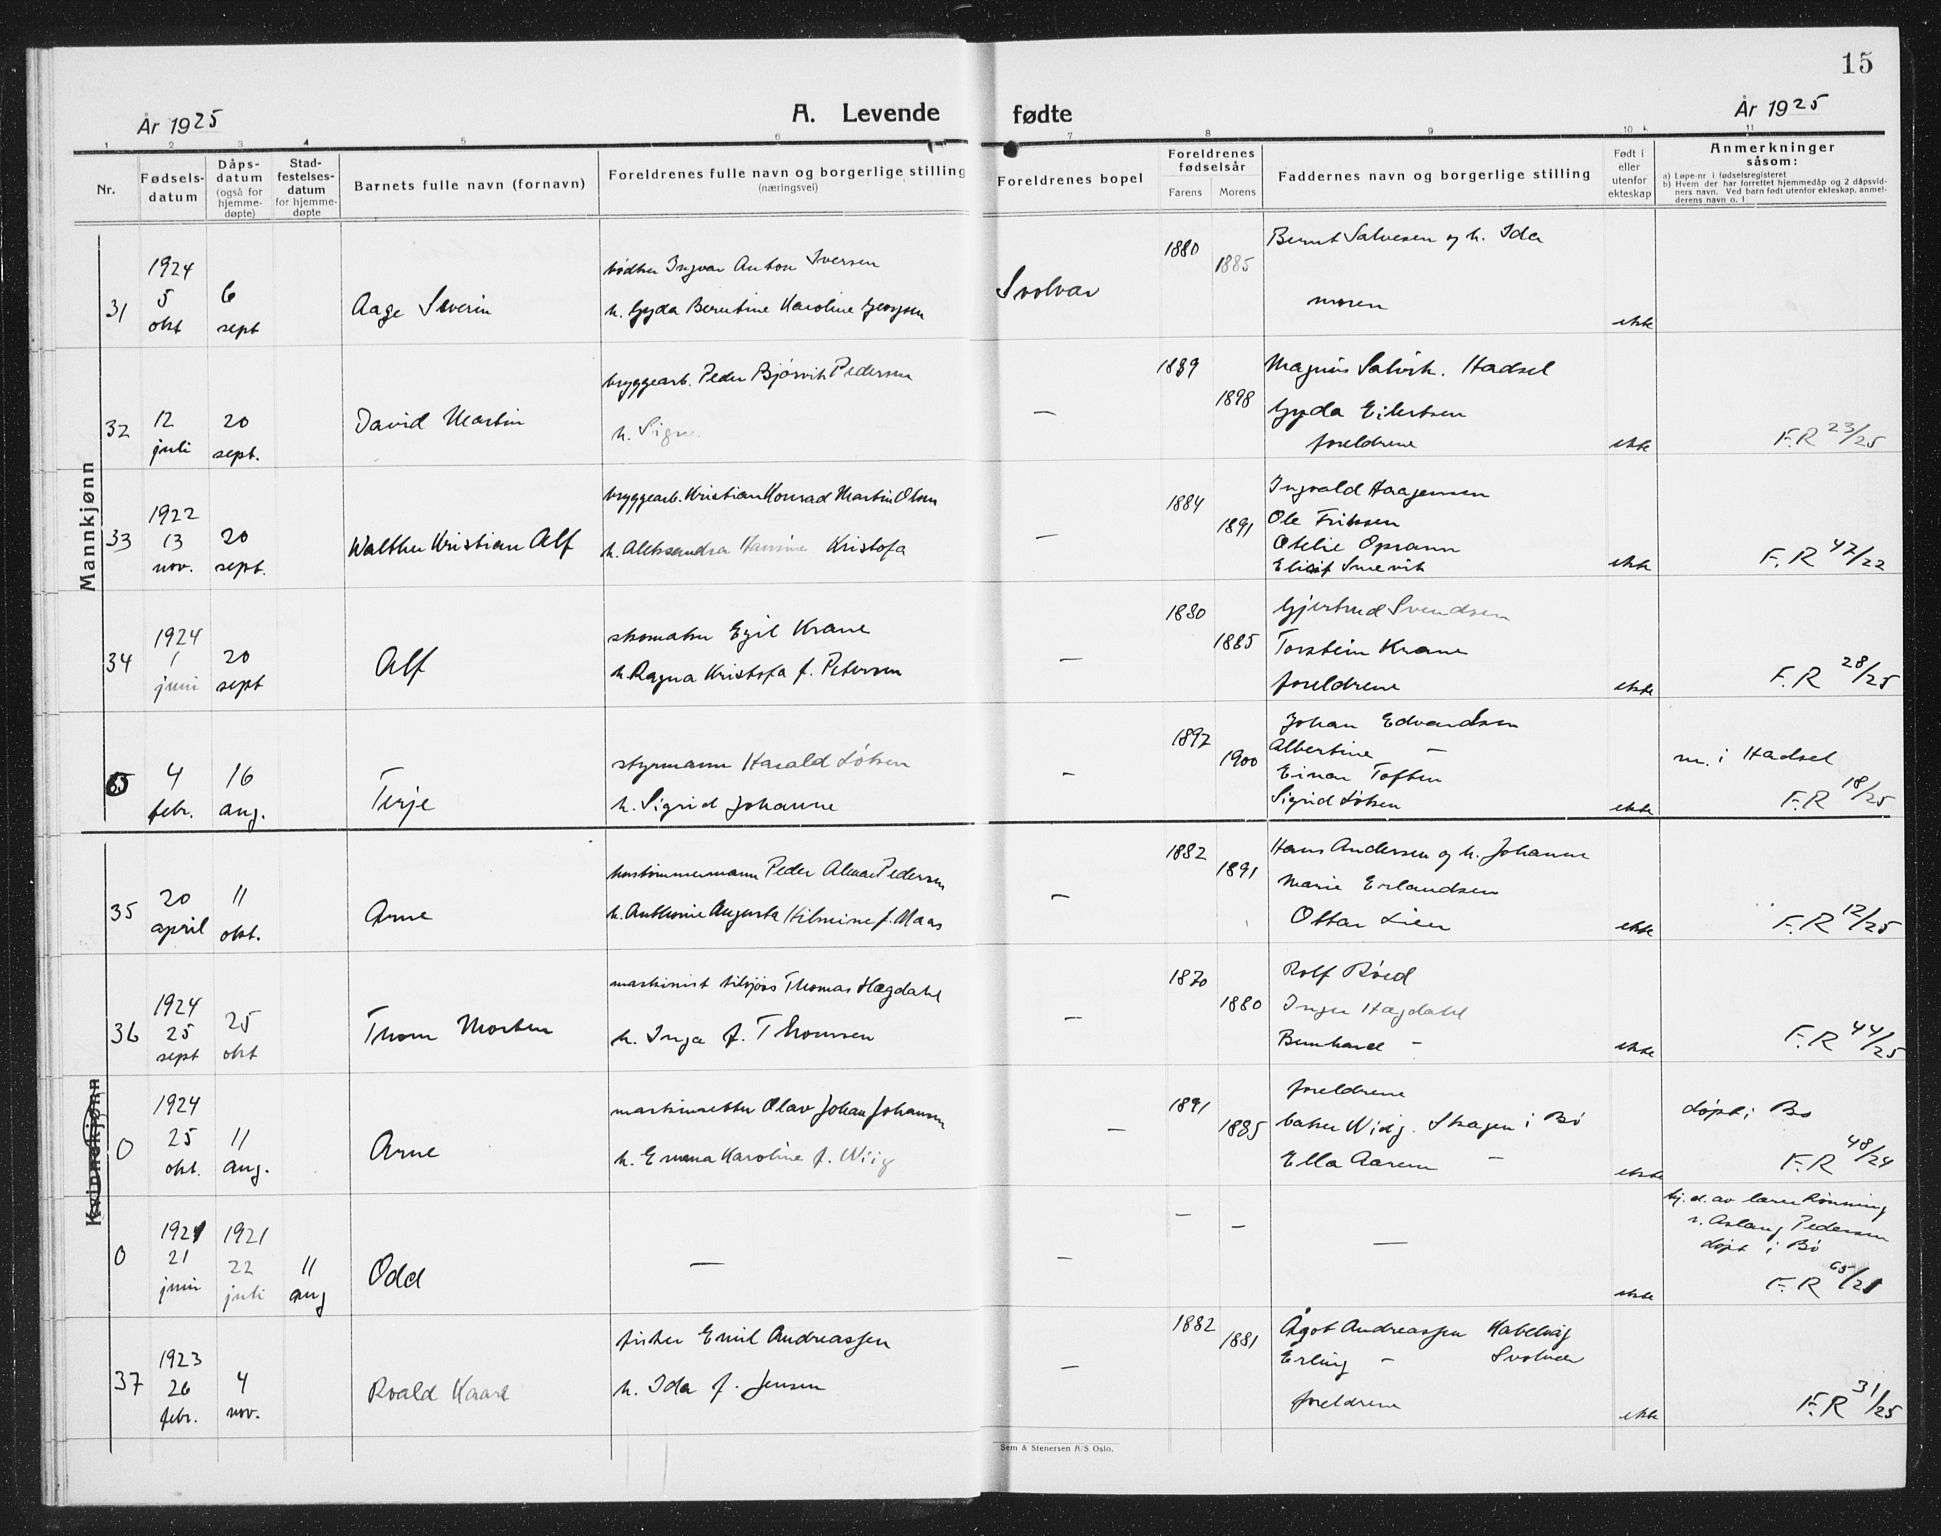 15
År 1925
A. Levende fødte
År 1925
1 2 3 4 5 6 7 8 9 10 11
Nr.
Fødsels-datum
Dåps-datum (også for hjemme-døpte)
Stad-festelses-datum for hjemme-døpte
Barnets fulle navn (fornavn)
Foreldrenes fulle navn og borgerlige stilling (næringsvei)
Foreldrenes bopel
Foreldrenes fødselsår
Farens Morens
Faddernes navn og borgerlige stilling
Født i eller utenfor ekteskap
Anmerkninger såsom:
a) Løpe-nr i fødselsregisteret
b) Hvem der har forrettet hjemmedåp og 2 dåpsvid-
ners navn. Ved barn født utenfor ekteskap, anmel-
derens navn o. l
Mannkjønn
31
1924 5 okt
6 sept
Aage Severin
bødker Ingvar Anton Iversen
h. Gyda Berntine Karoline
Svolvær
1880
1885
Bernt Salvesen og h. Ida
moren
ekte
32
12 juli
20 sept.
David Martin
bryggearb. Peder Bjørvik Pedersen
h. Signe
—
1889
1898
Magnus Hadsel
Gyda Eilertsen
foreldrene
ekte
F.R 23/25
33
1922 13 nov.
20 sept.
Walther Kristian Alf
bryggearb. Kristian Konrad Martin Olsen
h. Aleksandra Hansine Kristofa
—
1884
1891
Ingvald Haagensen
Ole Eriksen
Otelie
ekte
F.R 47/22
34
1924 1 juni
20 sept
Alf
skomaker Egil Krane
h. Ragna Kristofa f. Petersen
—
1880
1885
Gjertrud Svendsen
Torstein Krane
foreldrene
ekte
F.R 28/25
4 febr.
16 aug.
Terje
styrmann Harald Løksen
h. Sigrid Johanne
—
1892
1900
Johan Edvardsen
Albertine —
Einar Toften
Sigrid Løksen
ekte
m. i Hadsel
F.R 18/25
Kvinnekjønn
35
20 april
11 okt.
Arne
hustømmermann Peder Pedersen
h. Anthonie Augusta f. Maas
—
1882
1891
Hans Andersen og h. Johanne
Marie Erlandsen
Ottar Lien
ekte
F.R 12/25
36
1924 25 sept
25 okt
Thom Morten
maskinist tilsjøs Thomas Hegdahl
h. Inga f. Thomsen
—
1870
1880
Rolf Røed
Inger Hegdahl
Bernhard —
ekte
F.R 44/25
0
1924 25 okt.
11 aug.
Arne
Olav Johan Johansen
h. Emma Karoline f. Wiig
—
1891
1885
foreldrene
baker Skagen i Bø
Ella Aaren —
ekte
døpt i Bø
F.R 48/24
0
1921 21 juni
1921 22 juli
11 aug
Odd
—
—
—
—
—
ekte
hj. d. av lærer Rønning
v. Aslaug Pedersen
døpt i Bø
F.R 65/21
37
1923 26 febr.
4 nov.
Roald Kaare
fisker Emil Andreassen
h. Ida f. Jensen
—
1882
1881
Ågot Andreassen Kabelvåg
Erling — Svolvær
foreldrene
ekte
F.R 31/25
Sem & Stenersen A/S Oslo.